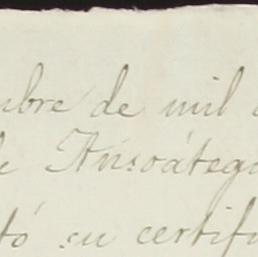 mbre de mil
e Ansoátegu
tó su certifi